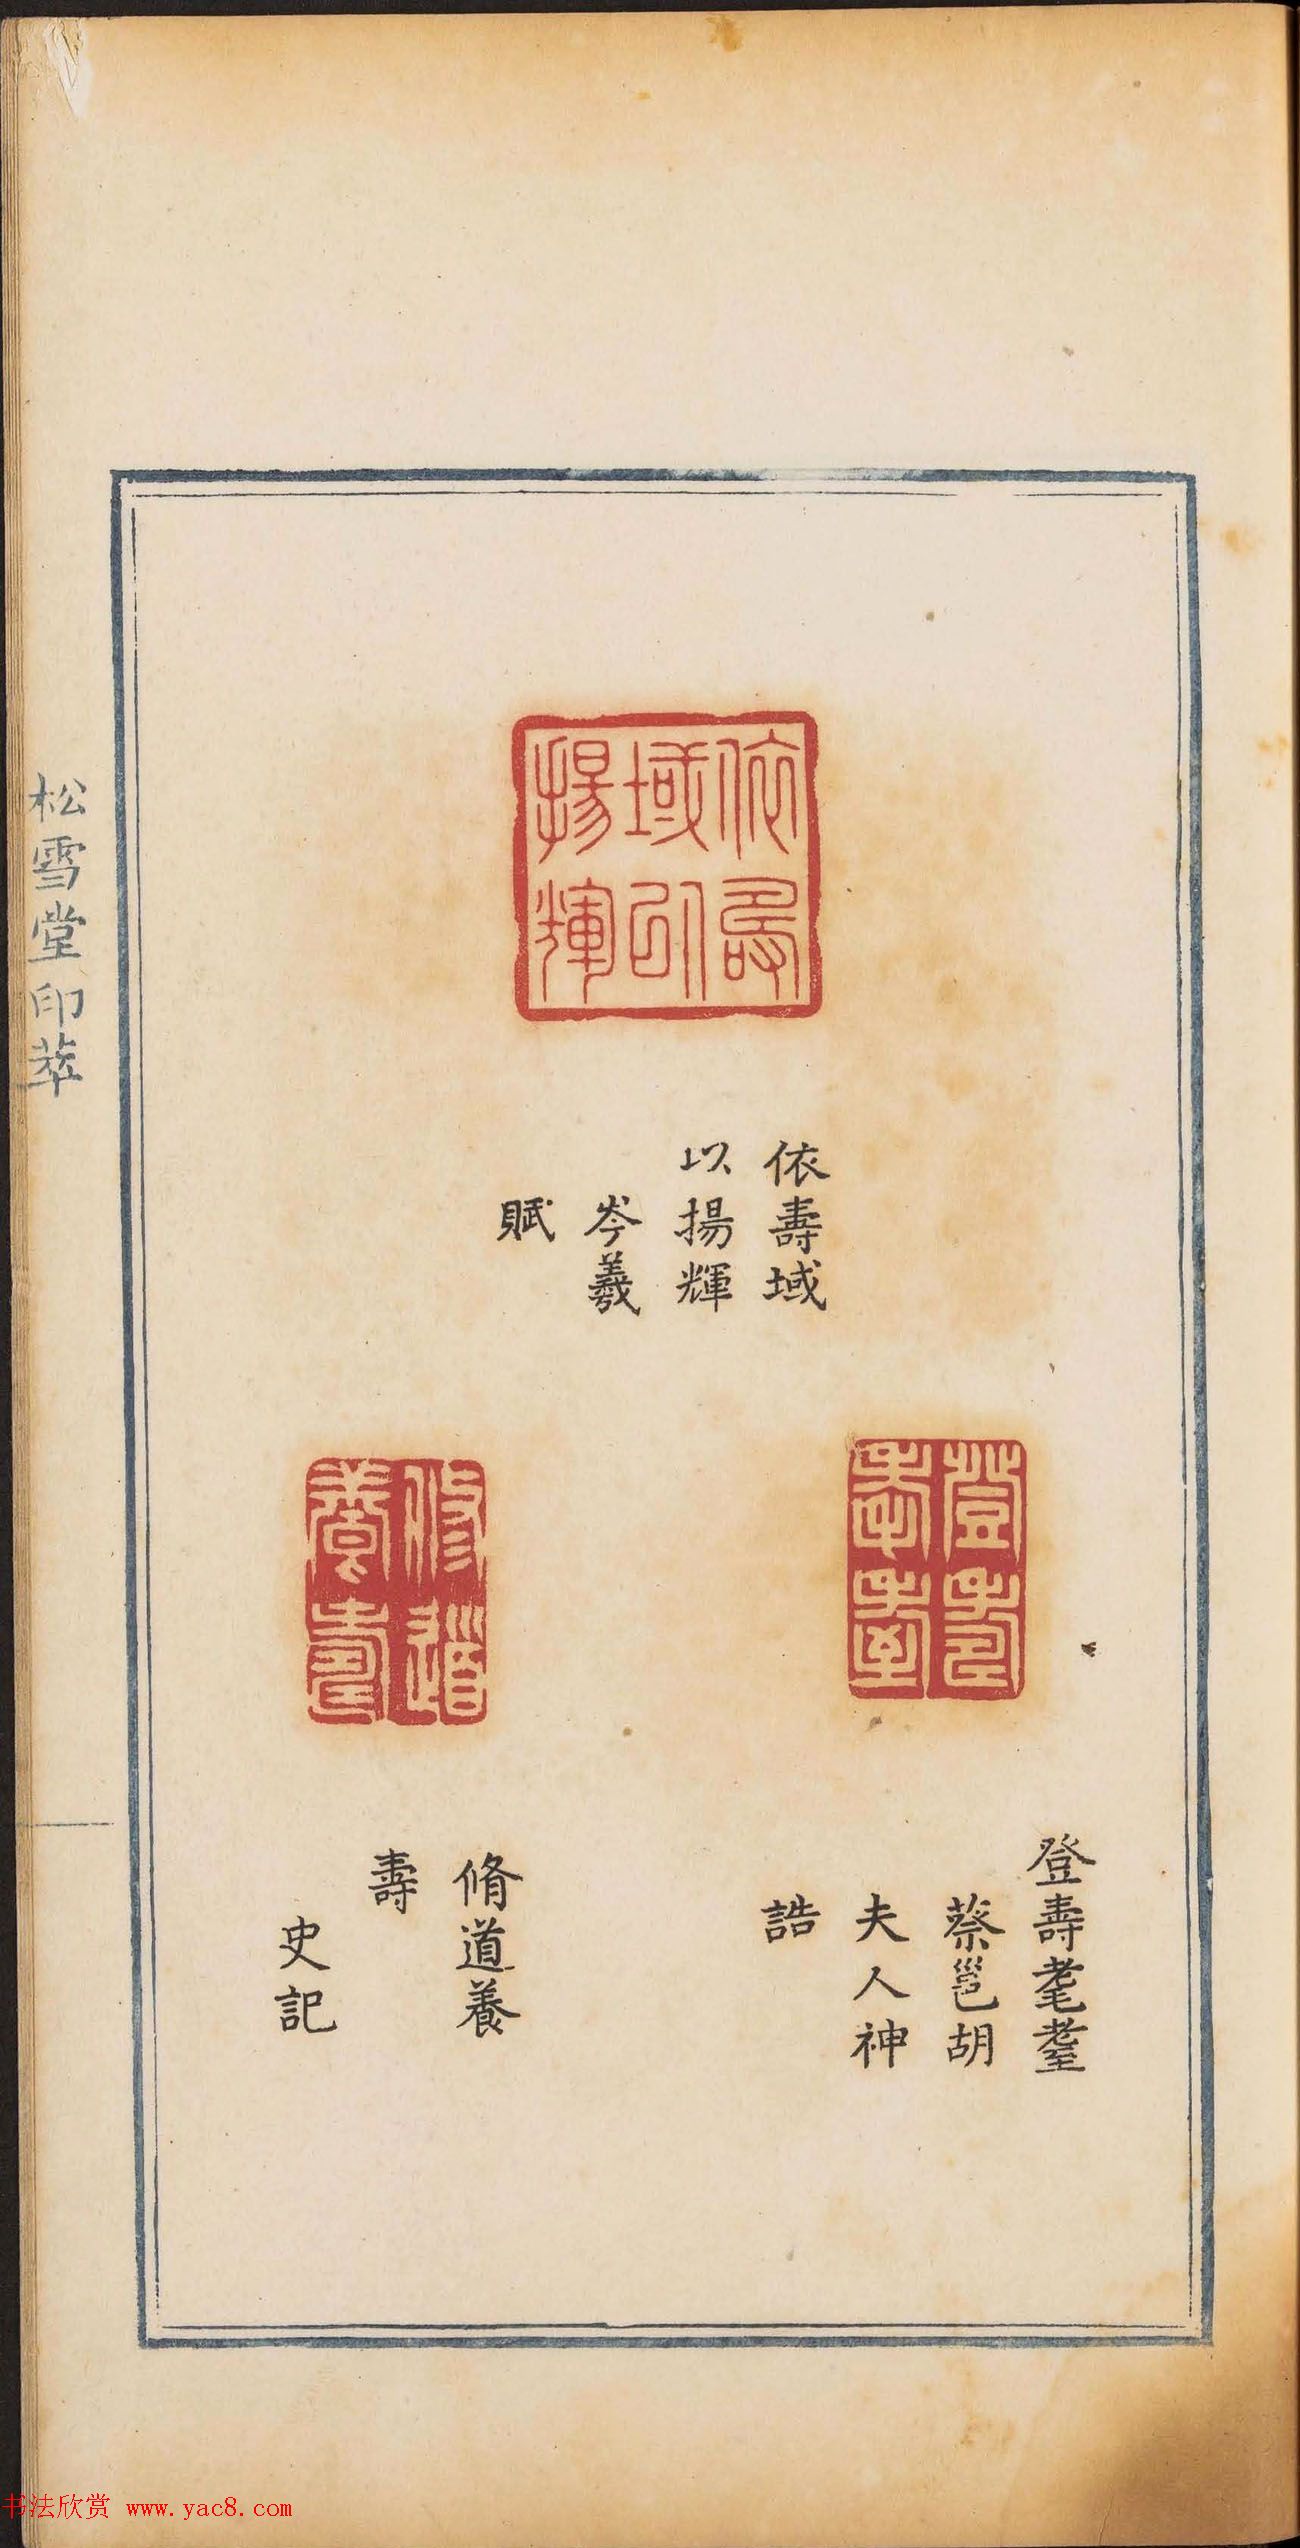 依壽域
以揚輝
岑羲
賦
依壽
域㠯
揚輝
登壽
耄耋
修道
養壽
登壽耄耋
蔡邕胡
夫人神
誥
脩道養
壽
史記
松雪堂印萃
书法欣赏 www.yac8.com